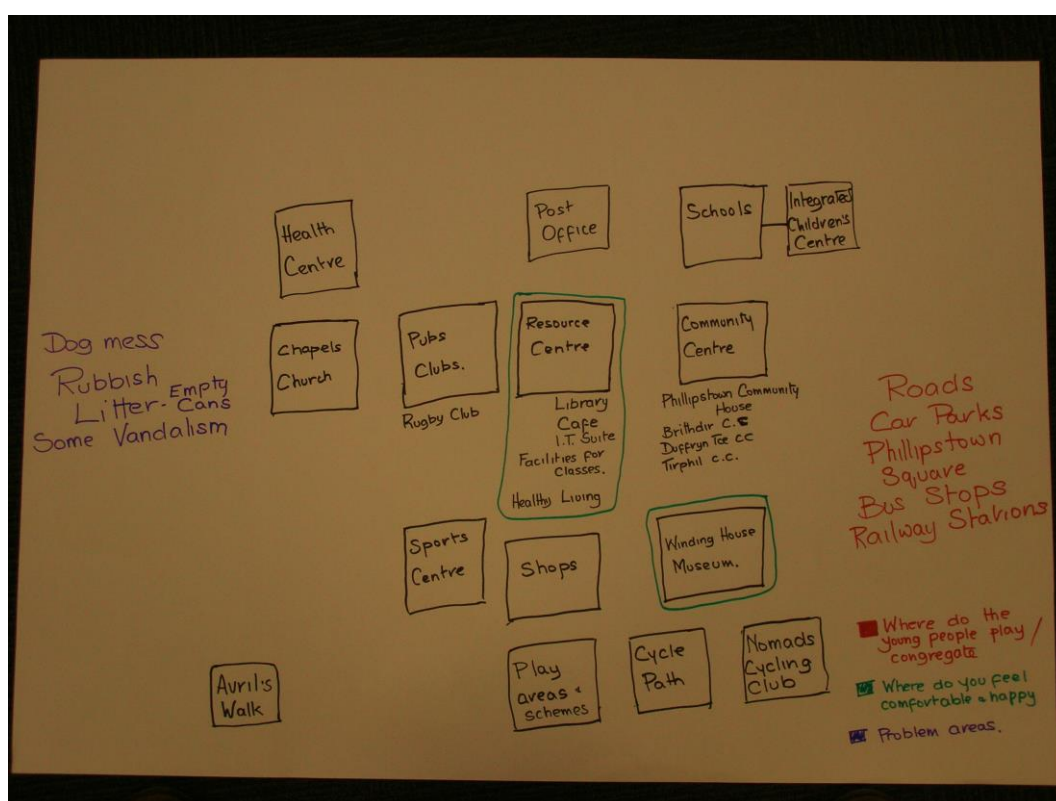 Health
Centre
Post
Office
Schools
Integrated
Children's
Centre
Chapels
Church
Pubs
Clubs.
Rugby Club
Resource
Centre
Library
Cafe
I.T. Suite
Facilities for
Classes.
Healthy Living
Community
Centre
Phillipstown Community
House
Brithdir C.C
Duffryn Tce CC
Tirphil C.C.
Dog mess
Rubbish
Litter- Empty
Cans
Some Vandalism
Roads
Car Parks
Phillipstown
Square
Bus Stops
Railway Stations
Sports
Centre
Shops
Winding House
Museum.
Avril's
Walk
Play
areas &
schemes
Cycle
Path
Nomads
Cycling
Club
Where do the
young people play /
congregate
Where do you feel
comfortable & happy
Problem areas.